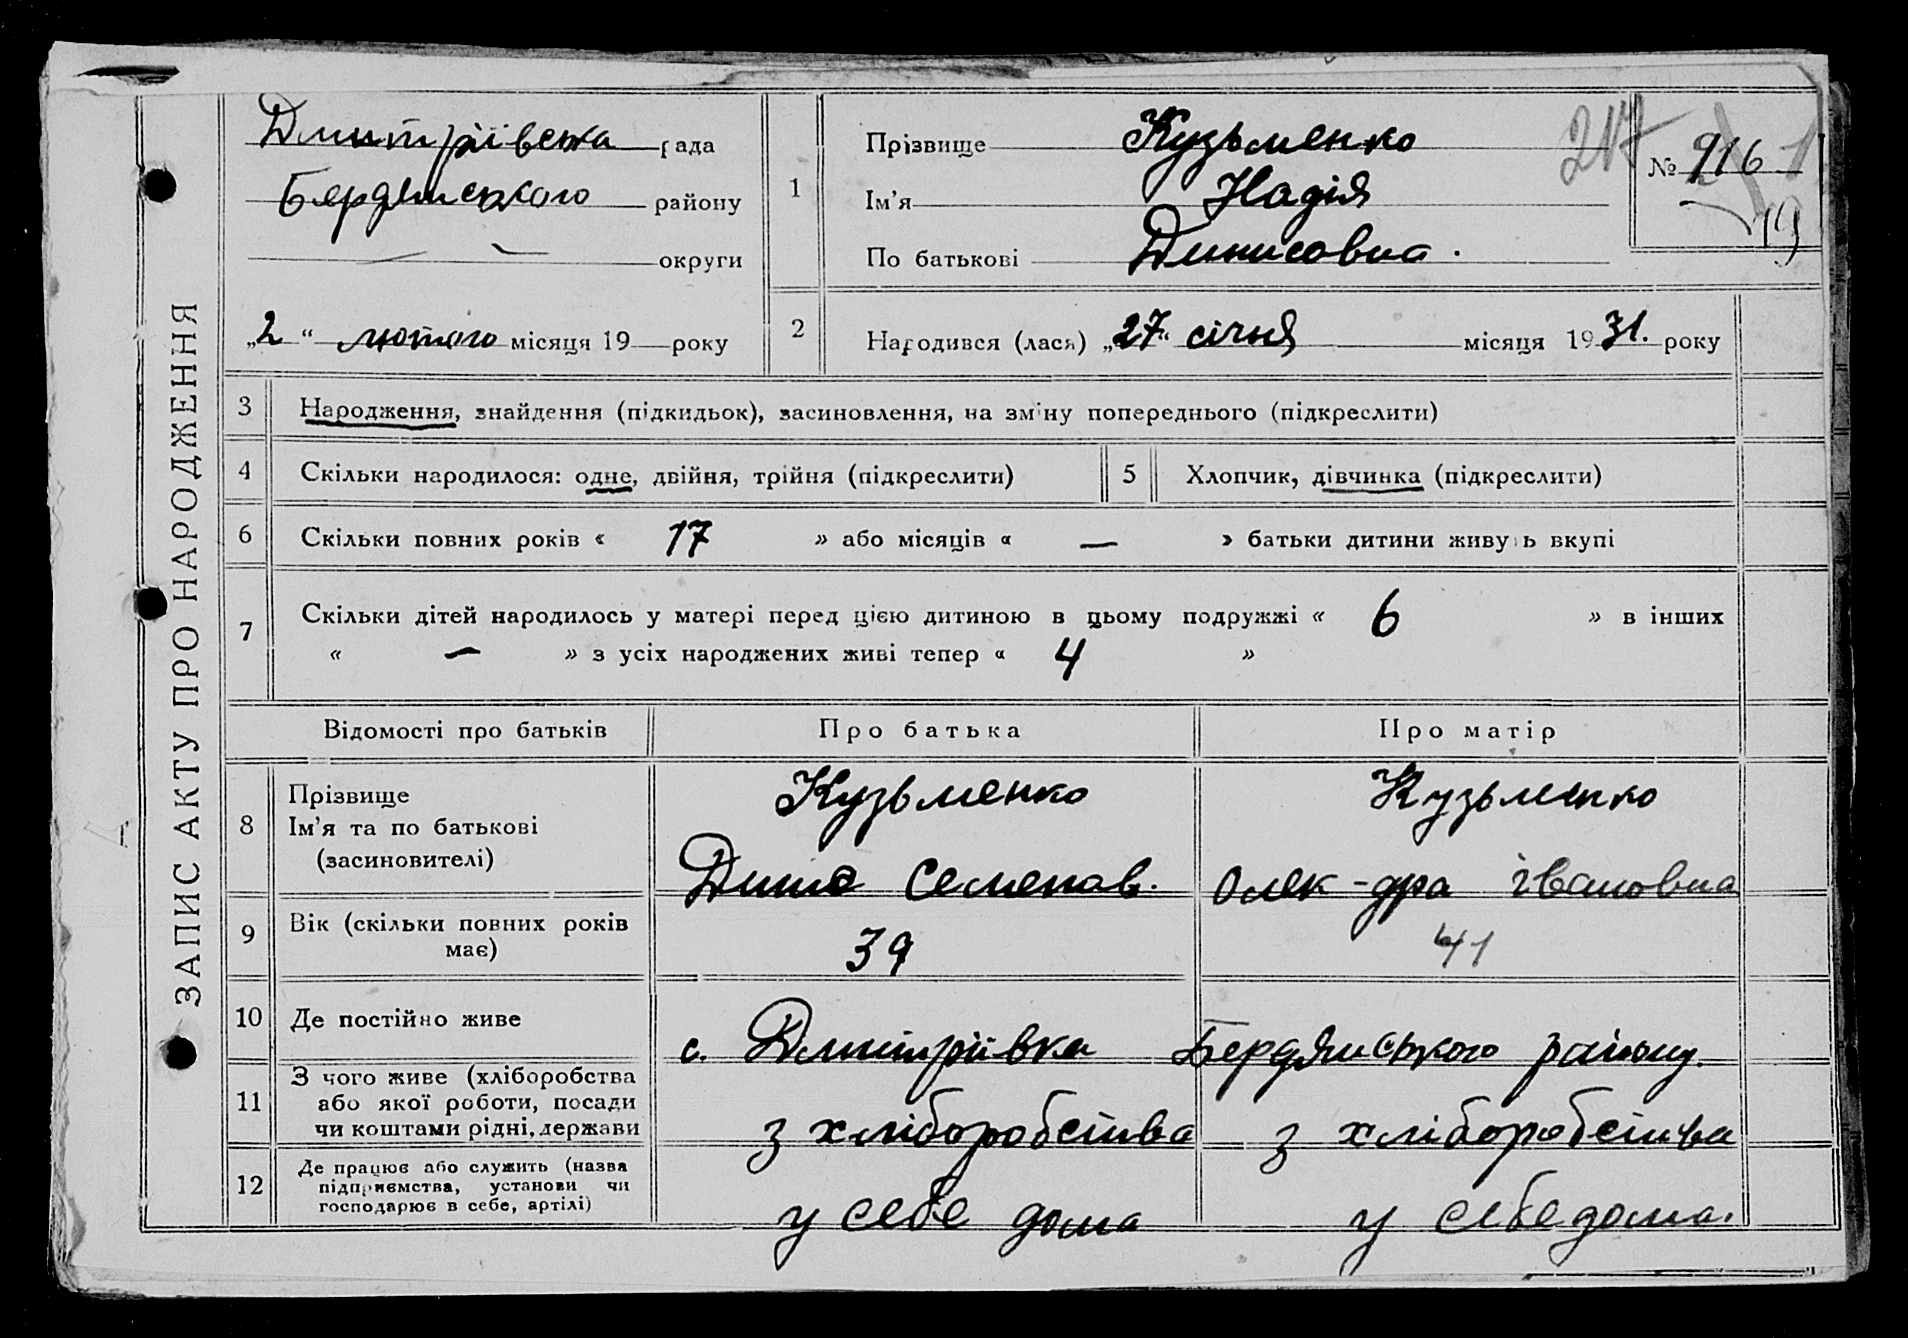 ЗАПИС АКТУ ПРО НАРОДЖЕННЯ
Дмитріївська рада
Бердянського району
округи
„2“ лютого місяця 19 року
1
Прізвище Кузьменко
Ім'я Надія
По батькові Динисовна.
217
№ 916
19
2
Народився (лася) „27“ січня місяця 1931. року
3 Народження, знайдення (підкидьок), засиновлення, на зміну попереднього (підкреслити)
4 Скільки народилося: одне, двійня, трійня (підкреслити) 5 Хлопчик, дівчинка (підкреслити)
6 Скільки повних років « 17 » або місяців « — » батьки дитини живуть вкупі
7 Скільки дітей народилось у матері перед цією дитиною в цьому подружжі « 6 » в інших
« — » з усіх народжених живі тепер « 4 »
Відомості про батьків Про батька Про матір
8 Прізвище
Ім'я та по батькові
(засиновителі)
Кузьменко
Семенов.
Кузьменко
Олек-дра івановна
9 Вік (скільки повних років має) 39 41
10 Де постійно живе с. Дмитріівка Бердянського району.
11 З чого живе (хліборобства
або якої роботи, посади
чи коштами рідні, держави
з хліборобства з хліборобства
12 Де працює або служить (назва
підприємства, установи чи
господарює в себе, артілі)
у себе дома у себе дома.